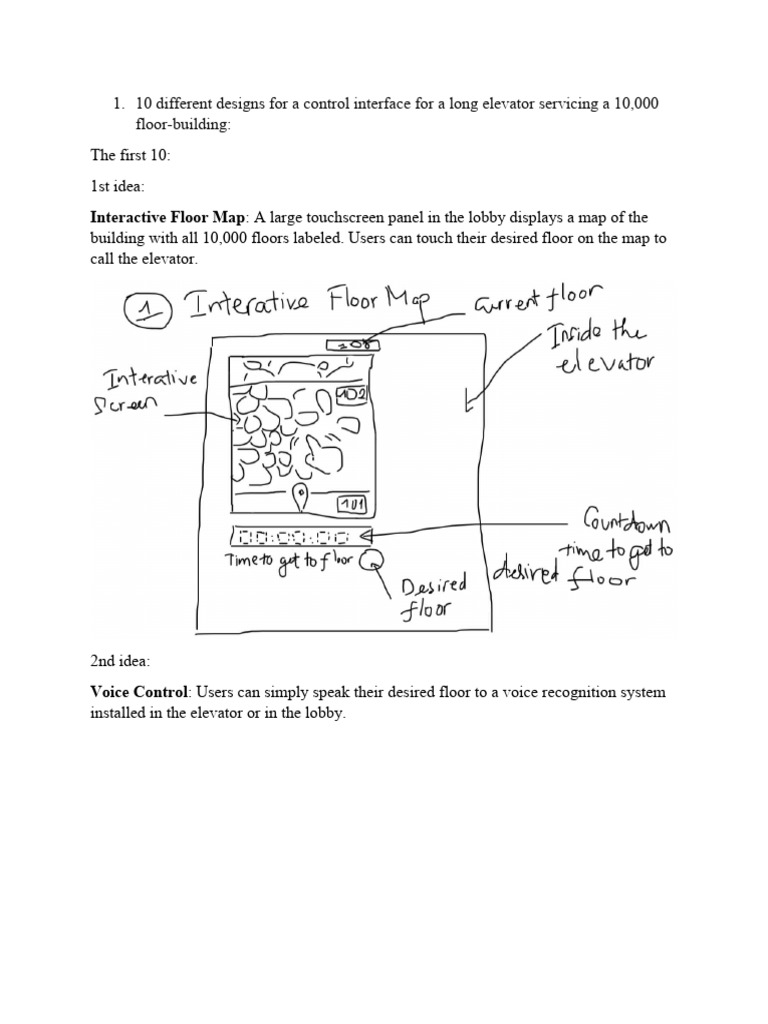 1. 10 different designs for a control interface for a long elevator servicing a 10,000
floor-building:
The first 10:
1st idea:
Interactive Floor Map: A large touchscreen panel in the lobby displays a map of the
building with all 10,000 floors labeled. Users can touch their desired floor on the map to
call the elevator.
1 Interative Floor Map
Current floor
Inside the
elevator
Interative
Screen
102
101
00:00:00
Time to get to floor
Desired
floor
Countdown
time to get to
desired floor
2nd idea:
Voice Control: Users can simply speak their desired floor to a voice recognition system
installed in the elevator or in the lobby.